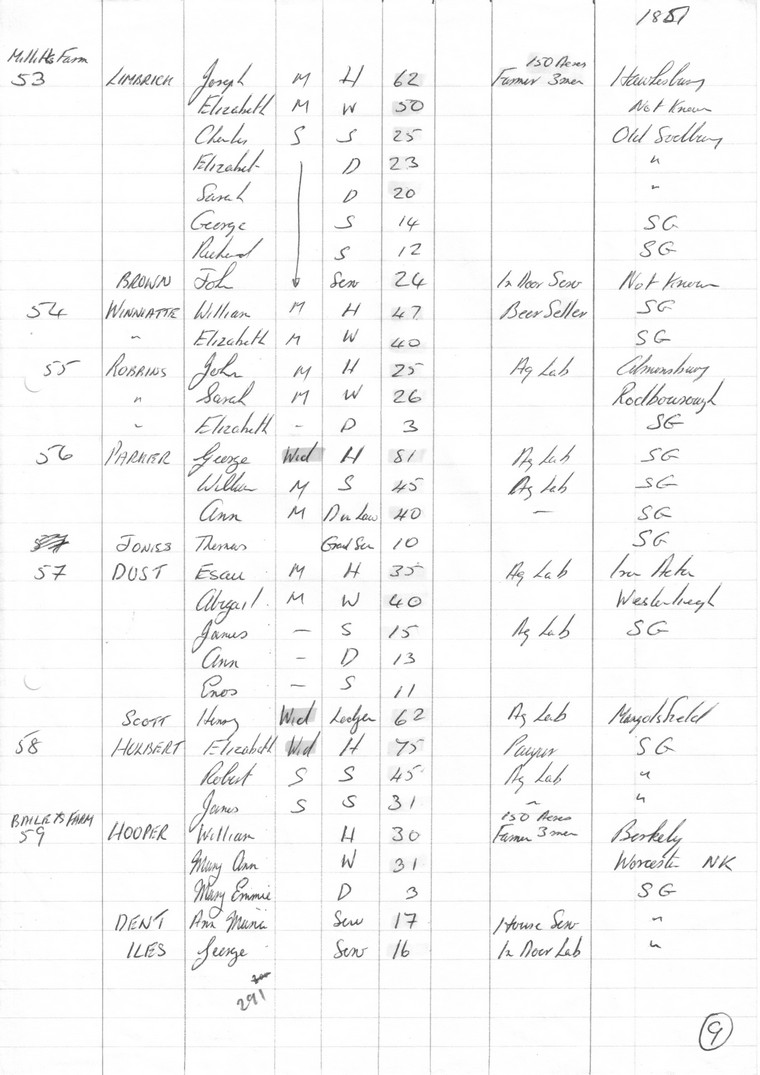 1851
Milletts Farm 150 Acres
53 LIMBRICK Joseph M H 62 Farmer 3 men Hawkesbury
Elizabeth M W 50 Not Known
Charles S S 25 Old Sodbury
Elizabet D 23 "
Sarah D 20 "
George S 14 SG
Richard S 12 SG
BROWN John Serv 24 In Door Serv Not Known
54 WINNIATTE William M H 47 Beer Seller SG
" Elizabeth M W 40 SG
55 ROBBINS John M H 25 Ag Lab
" Sarah M W 26 Rodbourough
" Elizabeth - D 3 SG
56 PARKER George Wid H 81 Ag Lab SG
William M S 45 Ag Lab SG
Ann M D in Law 40 — SG
JONISS Thomas Grand Son 10 SG
57 DUST Esau M H 35 Ag Lab Iron Acton
Abigail M W 40 Westerleigh
James — S 15 Ag Lab SG
Ann - D 13
Enos - S 11
SCOTT Henry Wid Lodger 62 Ag Lab Mangotsfield
58 HULBERT Elizabeth Wid H 75 Pauper SG
Robert S S 45 Ag Lab "
James S S 31 " "
BAILEYS FARM 150 Acres
59 HOOPER William H 30 Farmer 3 men Berkely
Mary Ann W 31 Worcester NK
Mary Emmie D 3 SG
DENT Ann Maria Serv 17 House Serv "
ILES George Serv 16 In Door Lab "
291
9